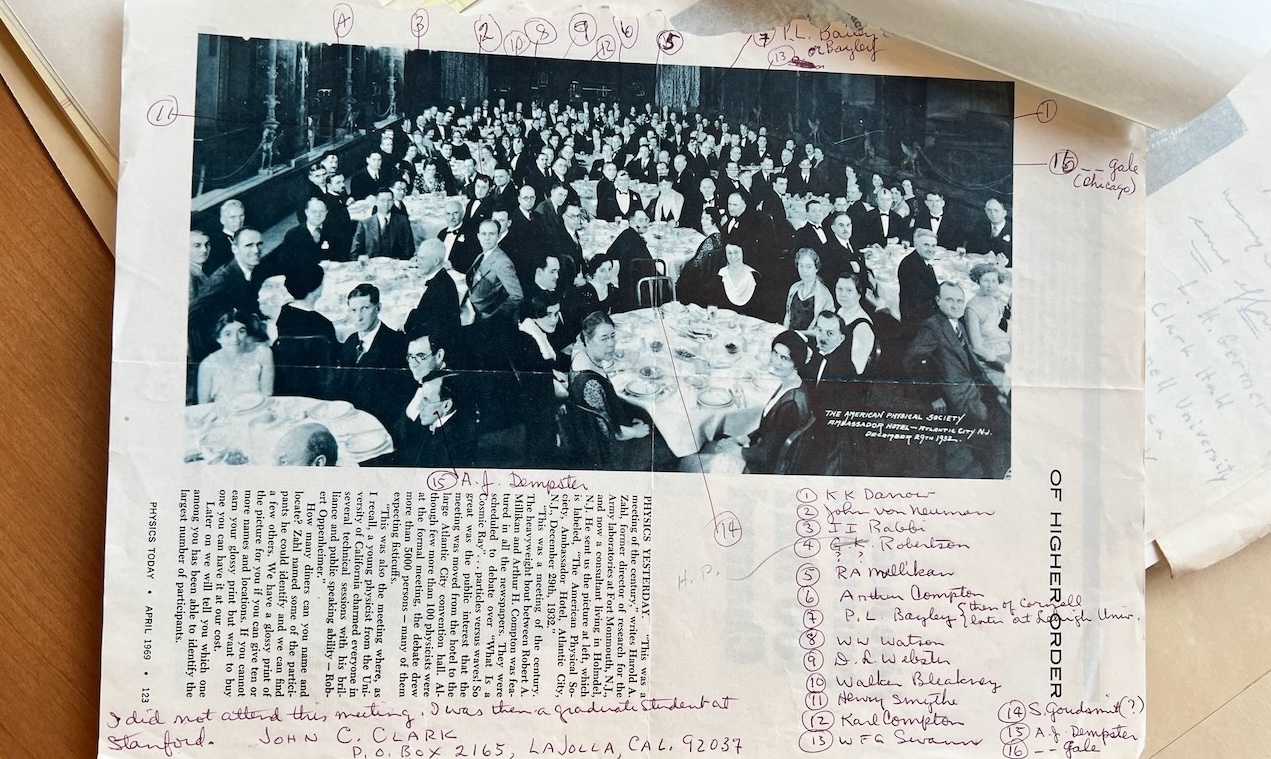 4
3
2
10
8
9
12
6
5
7 P.L. Bailey
or Bayley
13
11
1
16 -- gale
(Chicago)
THE AMERICAN PHYSICAL SOCIETY
AMBASSADOR HOTEL — ATLANTIC CITY N.J.
DECEMBER 29TH 1932.
15 A.J. Dempster
14
PHYSICS YESTERDAY. "This was a
meeting of the century," writes Harold A.
Zahl, former director of research for the
Army laboratories at Fort Monmouth, N.J.
and now a consultant living in Holmdel,
N.J. He sent us the picture at left, which
is labeled, "The American Physical So-
ciety, Ambassador Hotel, Atlantic City,
N.J., December 29th, 1932."
"This was a meeting of the century.
The heavyweight bout between Robert A.
Millikan and Arthur H. Compton was fea-
tured in all the newspapers. They were
scheduled to debate over "What Is a
Cosmic Ray"... particles versus waves! So
great was the public interest that the
meeting was moved from the hotel to the
large Atlantic City convention hall. Al-
though few more than 100 physicists were
at the formal meeting, the debate drew
more than 5000 persons — many of them
expecting fisticuffs.
"This was also the meeting where, as
I recall, a young physicist from the Uni-
versity of California charmed everyone in
several technical sessions with his bril-
liance and public speaking ability — Rob-
ert Oppenheimer."
How many diners can you name and
locate? Zahl named some of the partici-
pants he could identify and we can find
a few others. We have a glossy print of
the picture for you if you can give ten or
more names and locations. If you cannot
earn your glossy print but want to buy
one you can have it at our cost.
Later on we will tell you which one
among you has been able to identify the
largest number of participants.
PHYSICS TODAY • APRIL 1969 • 123
OF HIGHER ORDER
1 K K Darrow
2 John von Neuman
3 I I Rabbi
4 G.K. Robertson
H.P.
5 RA Millikan
6 Arthur Compton
7 P.L. Bayley { then of Cornell
later at Lehigh Univ.
8 WW Watson
9 D.L Webster
10 Walker Bleakney
11 Henry Smythe
12 Karl Compton
13 WFG Swann
14 S. Goudsmit (?)
15 A.J. Dempster
16 -- Gale
I did not attend this meeting. I was then a graduate student at
Stanford. JOHN C. CLARK
P.O. BOX 2165, LAJOLLA, CAL. 92037
L. H. Germer
Clark Hall
University